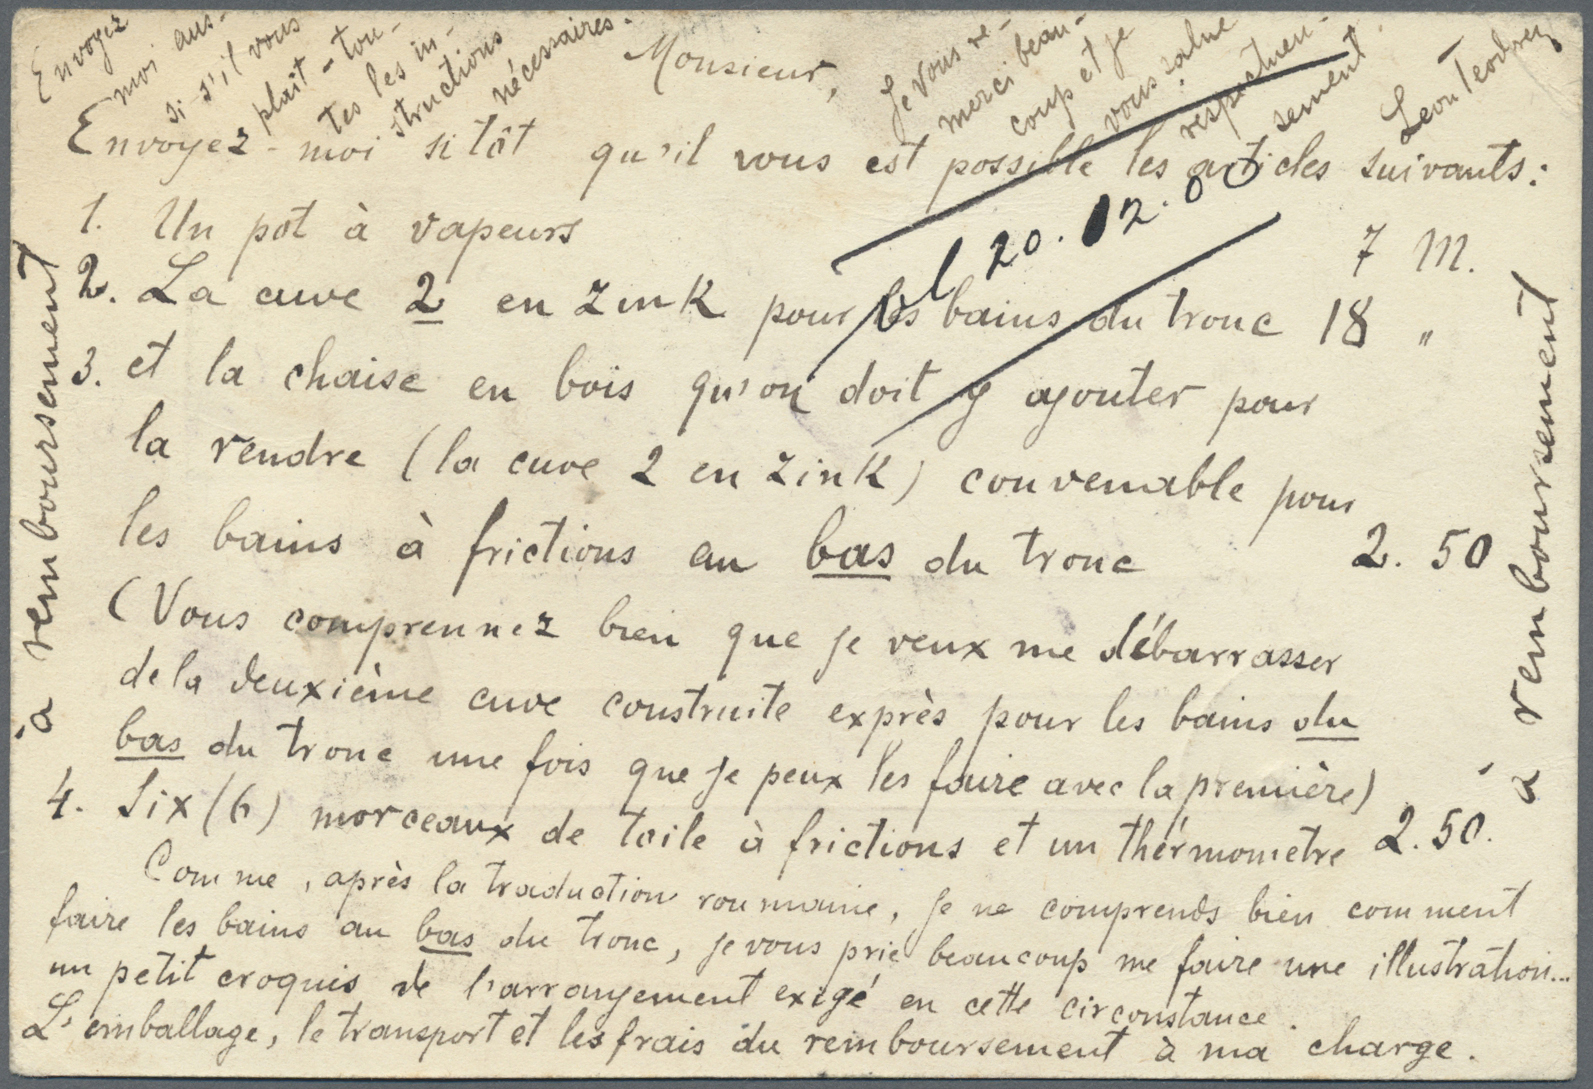 Monsieur,
Envoyez-moi sitôt qu'il vous est possible les articles suivants:
1. Un pot à vapeurs 7 M.
2. La cuve 2 en zink pour les bains du tronc 18 "
3. et la chaise en bois qu'on doit y ajouter pour
la rendre (la cuve 2 en zink) convenable pour
les bains à frictions au bas du tronc 2. 50
(Vous comprennez bien que je veux me débarrasser
de la deuxième cuve construite exprès pour les bains du
bas du tronc une fois que je peux les faire avec la première)
4. Six (6) morceaux de toile à frictions et un thérmometre 2.50.
Comme, après la traduction roumaine, je ne comprends bien comment
faire les bains au bas du tronc, je vous prie beaucoup me faire une illustration...
un petit croquis de l'arrangement exigé en cette circonstance.
L'emballage, le transport et les frais du remboursement à ma charge.
Envoyez
moi aus-
si s'il vous
plaît - tou-
tes les in-
structions
nécessaires.
Je vous re-
merci beau-
coup et je
vous salue
respectueu-
sement.
20.12.00
à remboursement
à remboursement